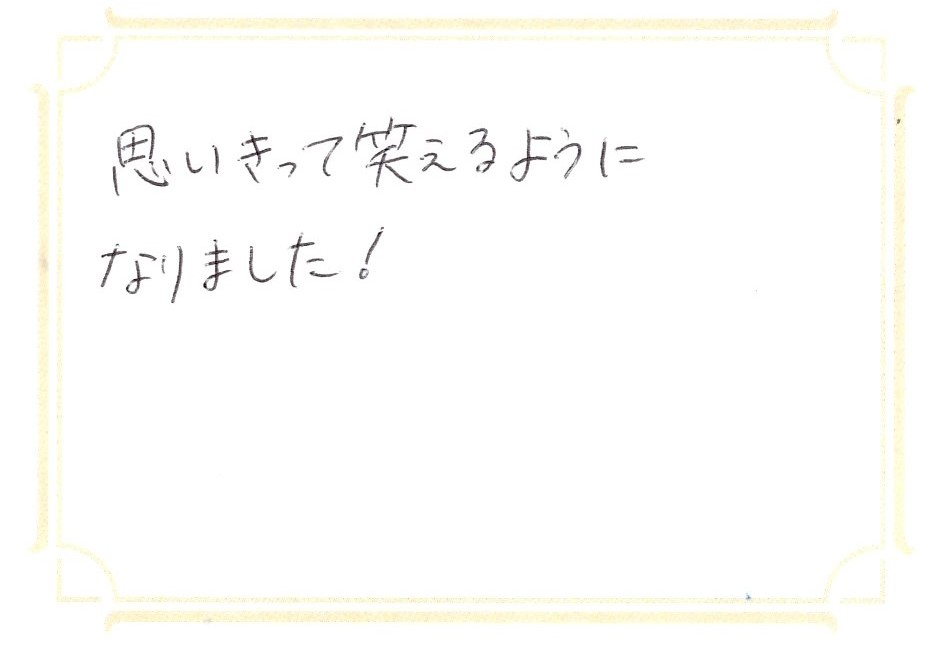 思いきって笑えるように
なりました!